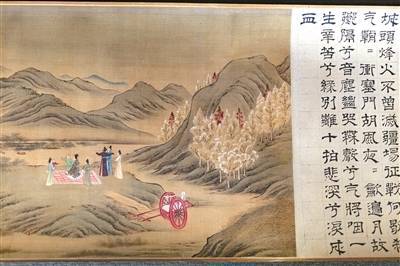 城頭烽火不曾滅疆場征戰何時歇殺
气朝〻衝塞門胡風夜〻吹邊月故
鄉隔兮音塵絕哭無聲兮气將咽一
生辛苦兮緣別離十拍悲深兮淚成
血